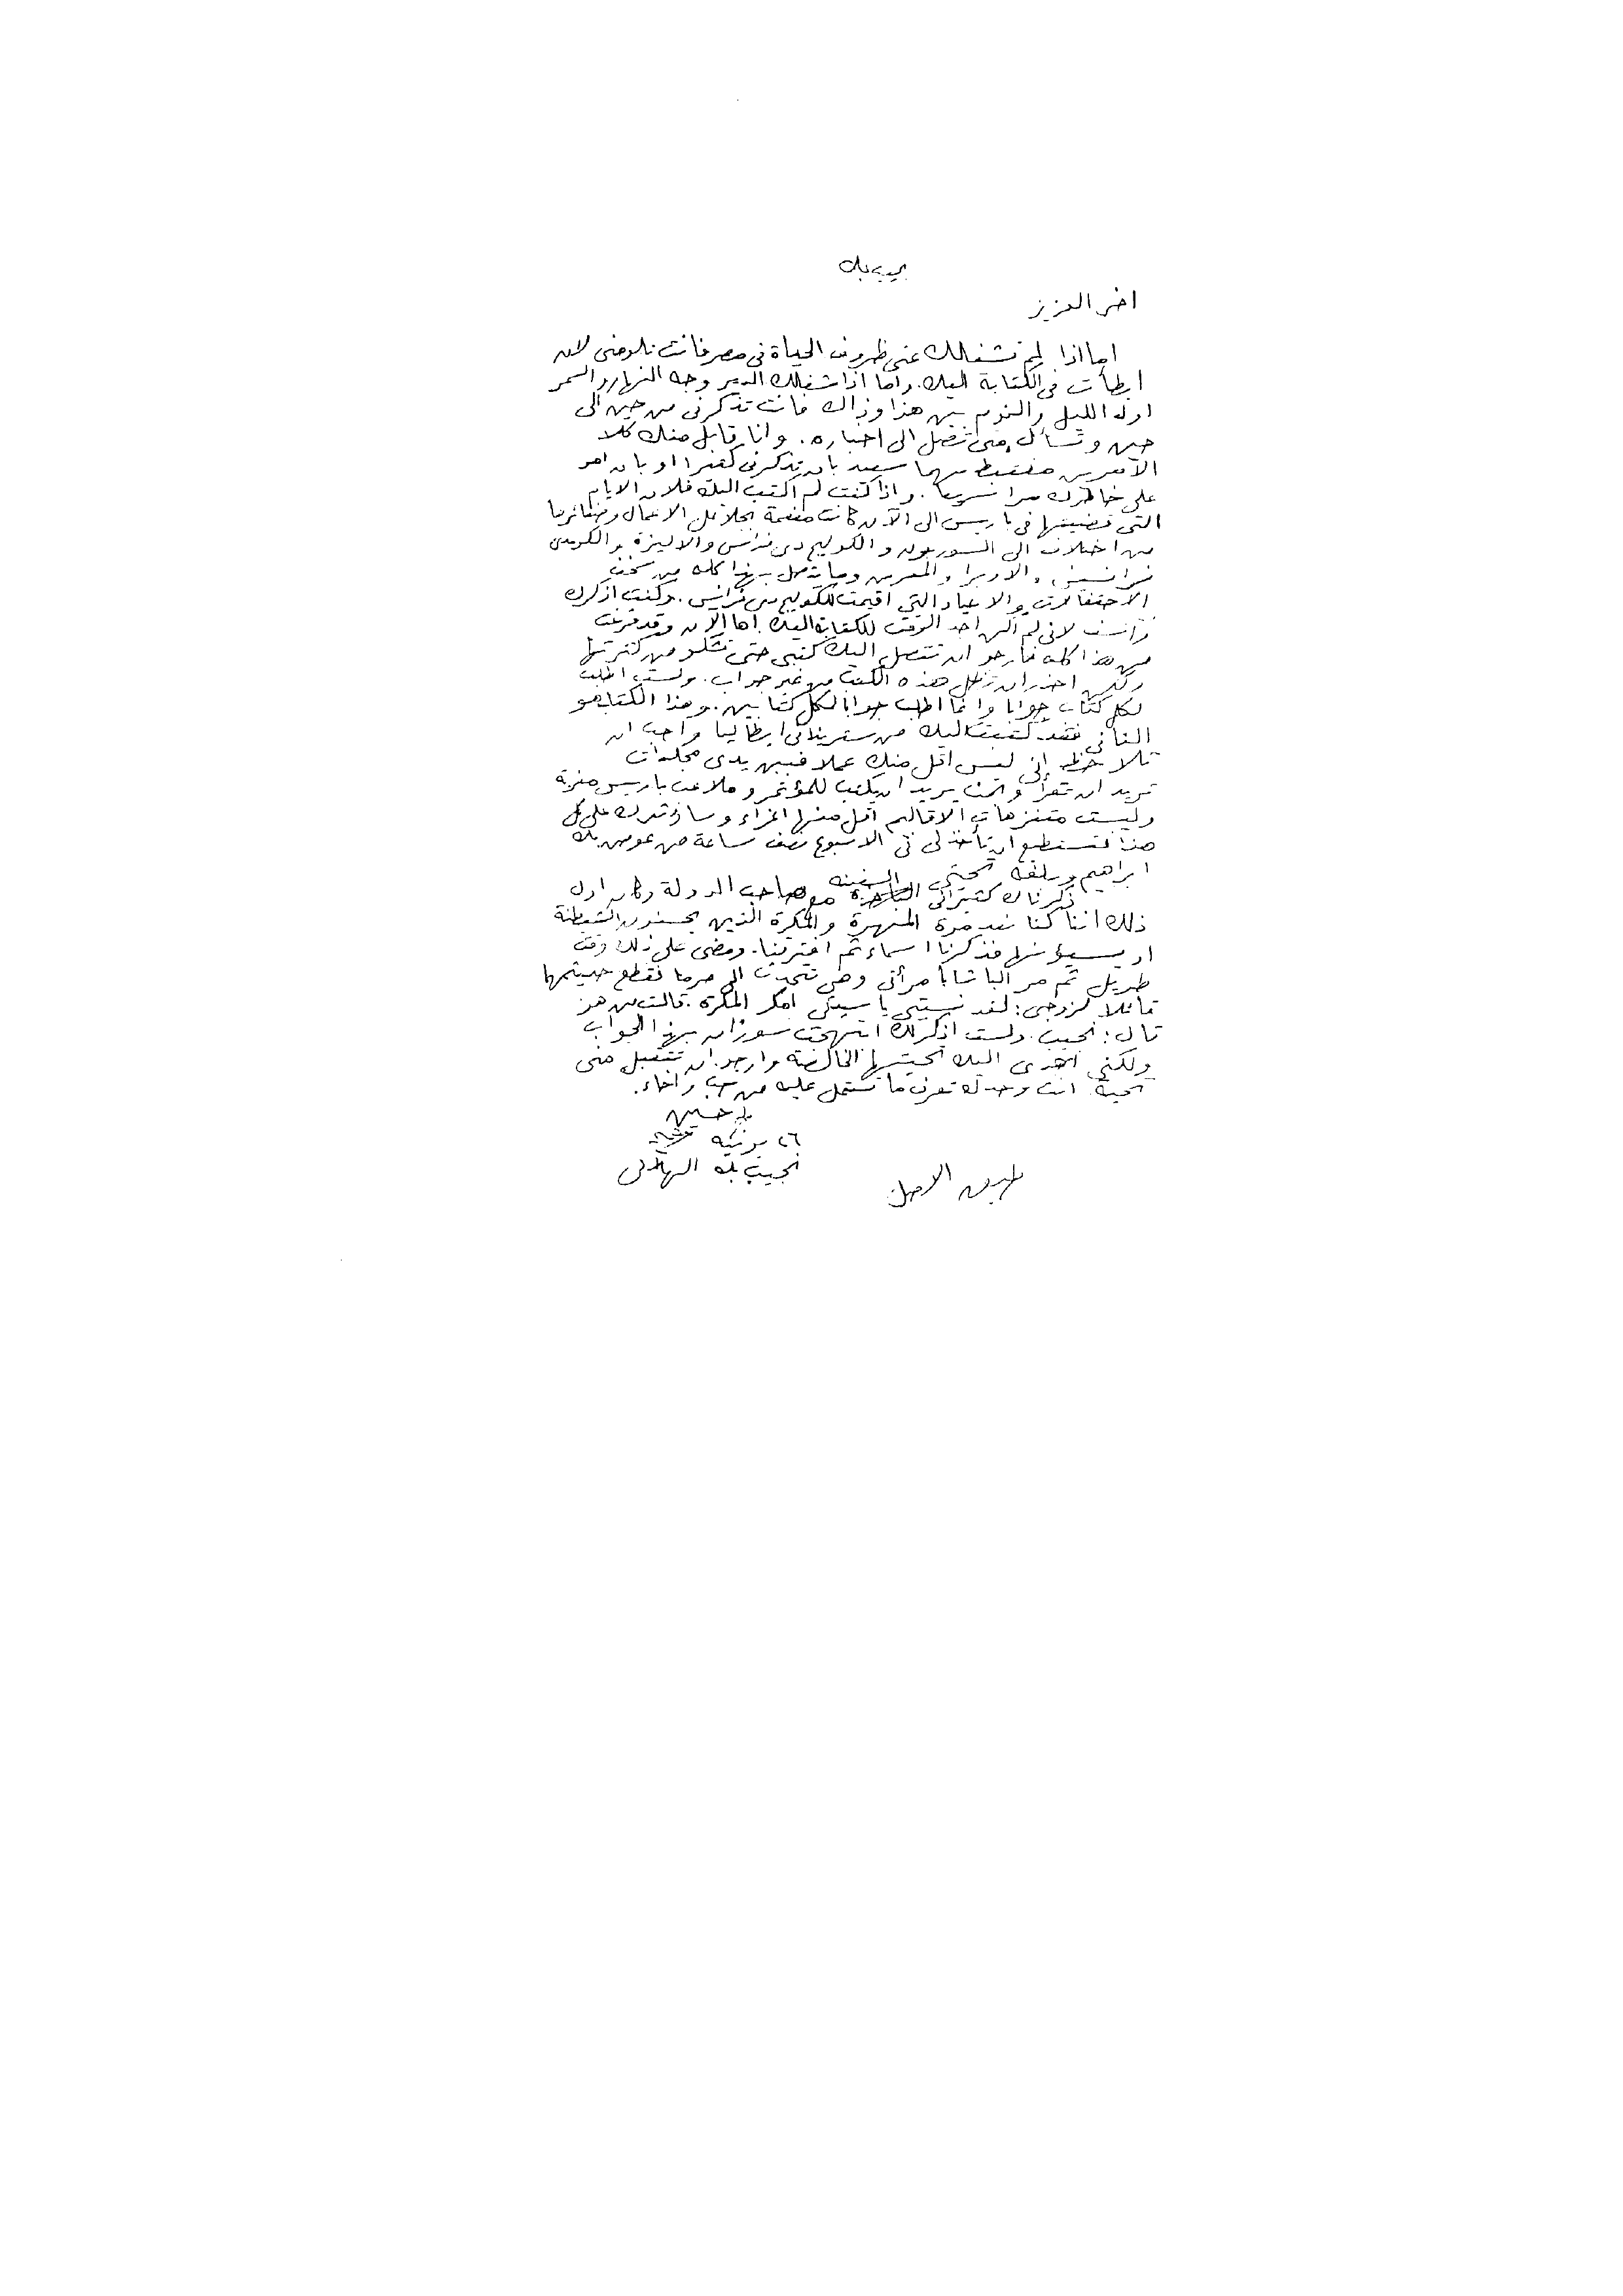 نجيب بك
اخي العزيز
اما اذا لم تشغلك عني ظروف الحياة في مصر فانت تلومني لاني
ابطأت في الكتابة اليك. واما اذا شغلك الدير وجه النهار والسمر
اول الليل والنوم بين هذا وذاك فانت تذكرني من حين الى
حين وتسأل متى تصل الى اخباره. وانا قابل منك كلا
الامرين مغتبط بهما سعيد بان تذكرني كثيرا او بان امر
على خاطرك مرا سريعا. واذا كنت لم اكتب اليك فلان الايام
التي قضيتها في باريس الى الآن كانت مفعمة بجلائل الاعمال وصغائرها
من اختلاف الى السوربون والكوليج دي فرانس والاليزة والكوميدي
فرانسيز والاوبرا والمعرض وما يتصل بهذا كله من سخف
الاحتفالات والاعياد التي اقيمت للكوليج دي فرانس. وكنت اذكرك
وآسف لاني لم اكن اجد الوقت للكتابة اليك. اما الآن وقد فرغت
من هذا كله فارجو ان تتصل اليك كتبي حتى تشكو من كثرتها
ولكني احذر ان تظل هذه الكتب من غير جواب. ولست اطلب
لكل كتاب جوابا وانما اطلب جوابا لكل كتابين. وهذا الكتاب هو
الثاني فقد كتبت اليك من ايطاليا واحب ان
تلاحظ اني ليس اقل منك عملا فبين يدي مجلدات
تريد ان تقرأ و يريد ان يكتب للمؤتمر وملاعب باريس مغرية
وليست متنزهات الاقاليم اقل منها اغراء وساوثرك على كل
هذا فتستطيع ان تأخذ لي في الاسبوع نصف ساعة من عوض بك
ابراهيم وبلغه تحيتي
ذكرناك كثيرا في السفينة مع صاحب الدولة وكان اول
ذلك اننا كنا نعد مرة المهرة والمكرة الذين يحسنون الشيطنة
او يسيؤنها فذكرنا اسماء ثم افترقنا. ومضى على ذلك وقت
طويل ثم مر الباشا بامرأتي وهي تتحدث الى فقطع حديثهما
قائلا لزوجي: لقد نسيتي يا سيدتي امكر المكرة. قالت من هو
قال: نجيب. ولست اذكر لك ابتهجت سوزان بهذا الجواب
ولكني اهدى اليك تحيتها الخالصة وارجو ان تتقبل مني
تحية انت وحدك تعرف ما تشتمل عليه من حب واخاء.
طه حسين
٢٦ يونيه
نجيب بك الهلالى
طبق الاصل